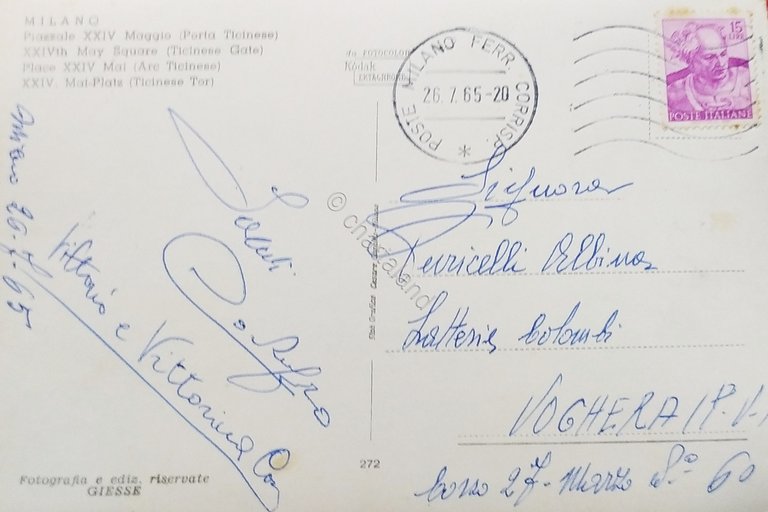 MILANO
Piazzale XXIV Maggio (Porta Ticinese)
XXIVth May Square (Ticinese Gate)
Place XXIV Mai (Arc Ticinese)
XXIV. Mai-Platz (Ticinese Tor)
da FOTOCOLOR
Kodak
EKTACHROME
POSTE MILANO FERR. CORRISP.
26.7.65-20
15
LIRE
POSTE ITALIANE
Milano 26-7-65
Saluti
Vittorio e Vittorina
Signora
Albina
Latteria Colombi
VOGHERA (P.V.
Corso 27-Marzo 60
© cha
land
272
Fotografia e ediz. riservate
GIESSE